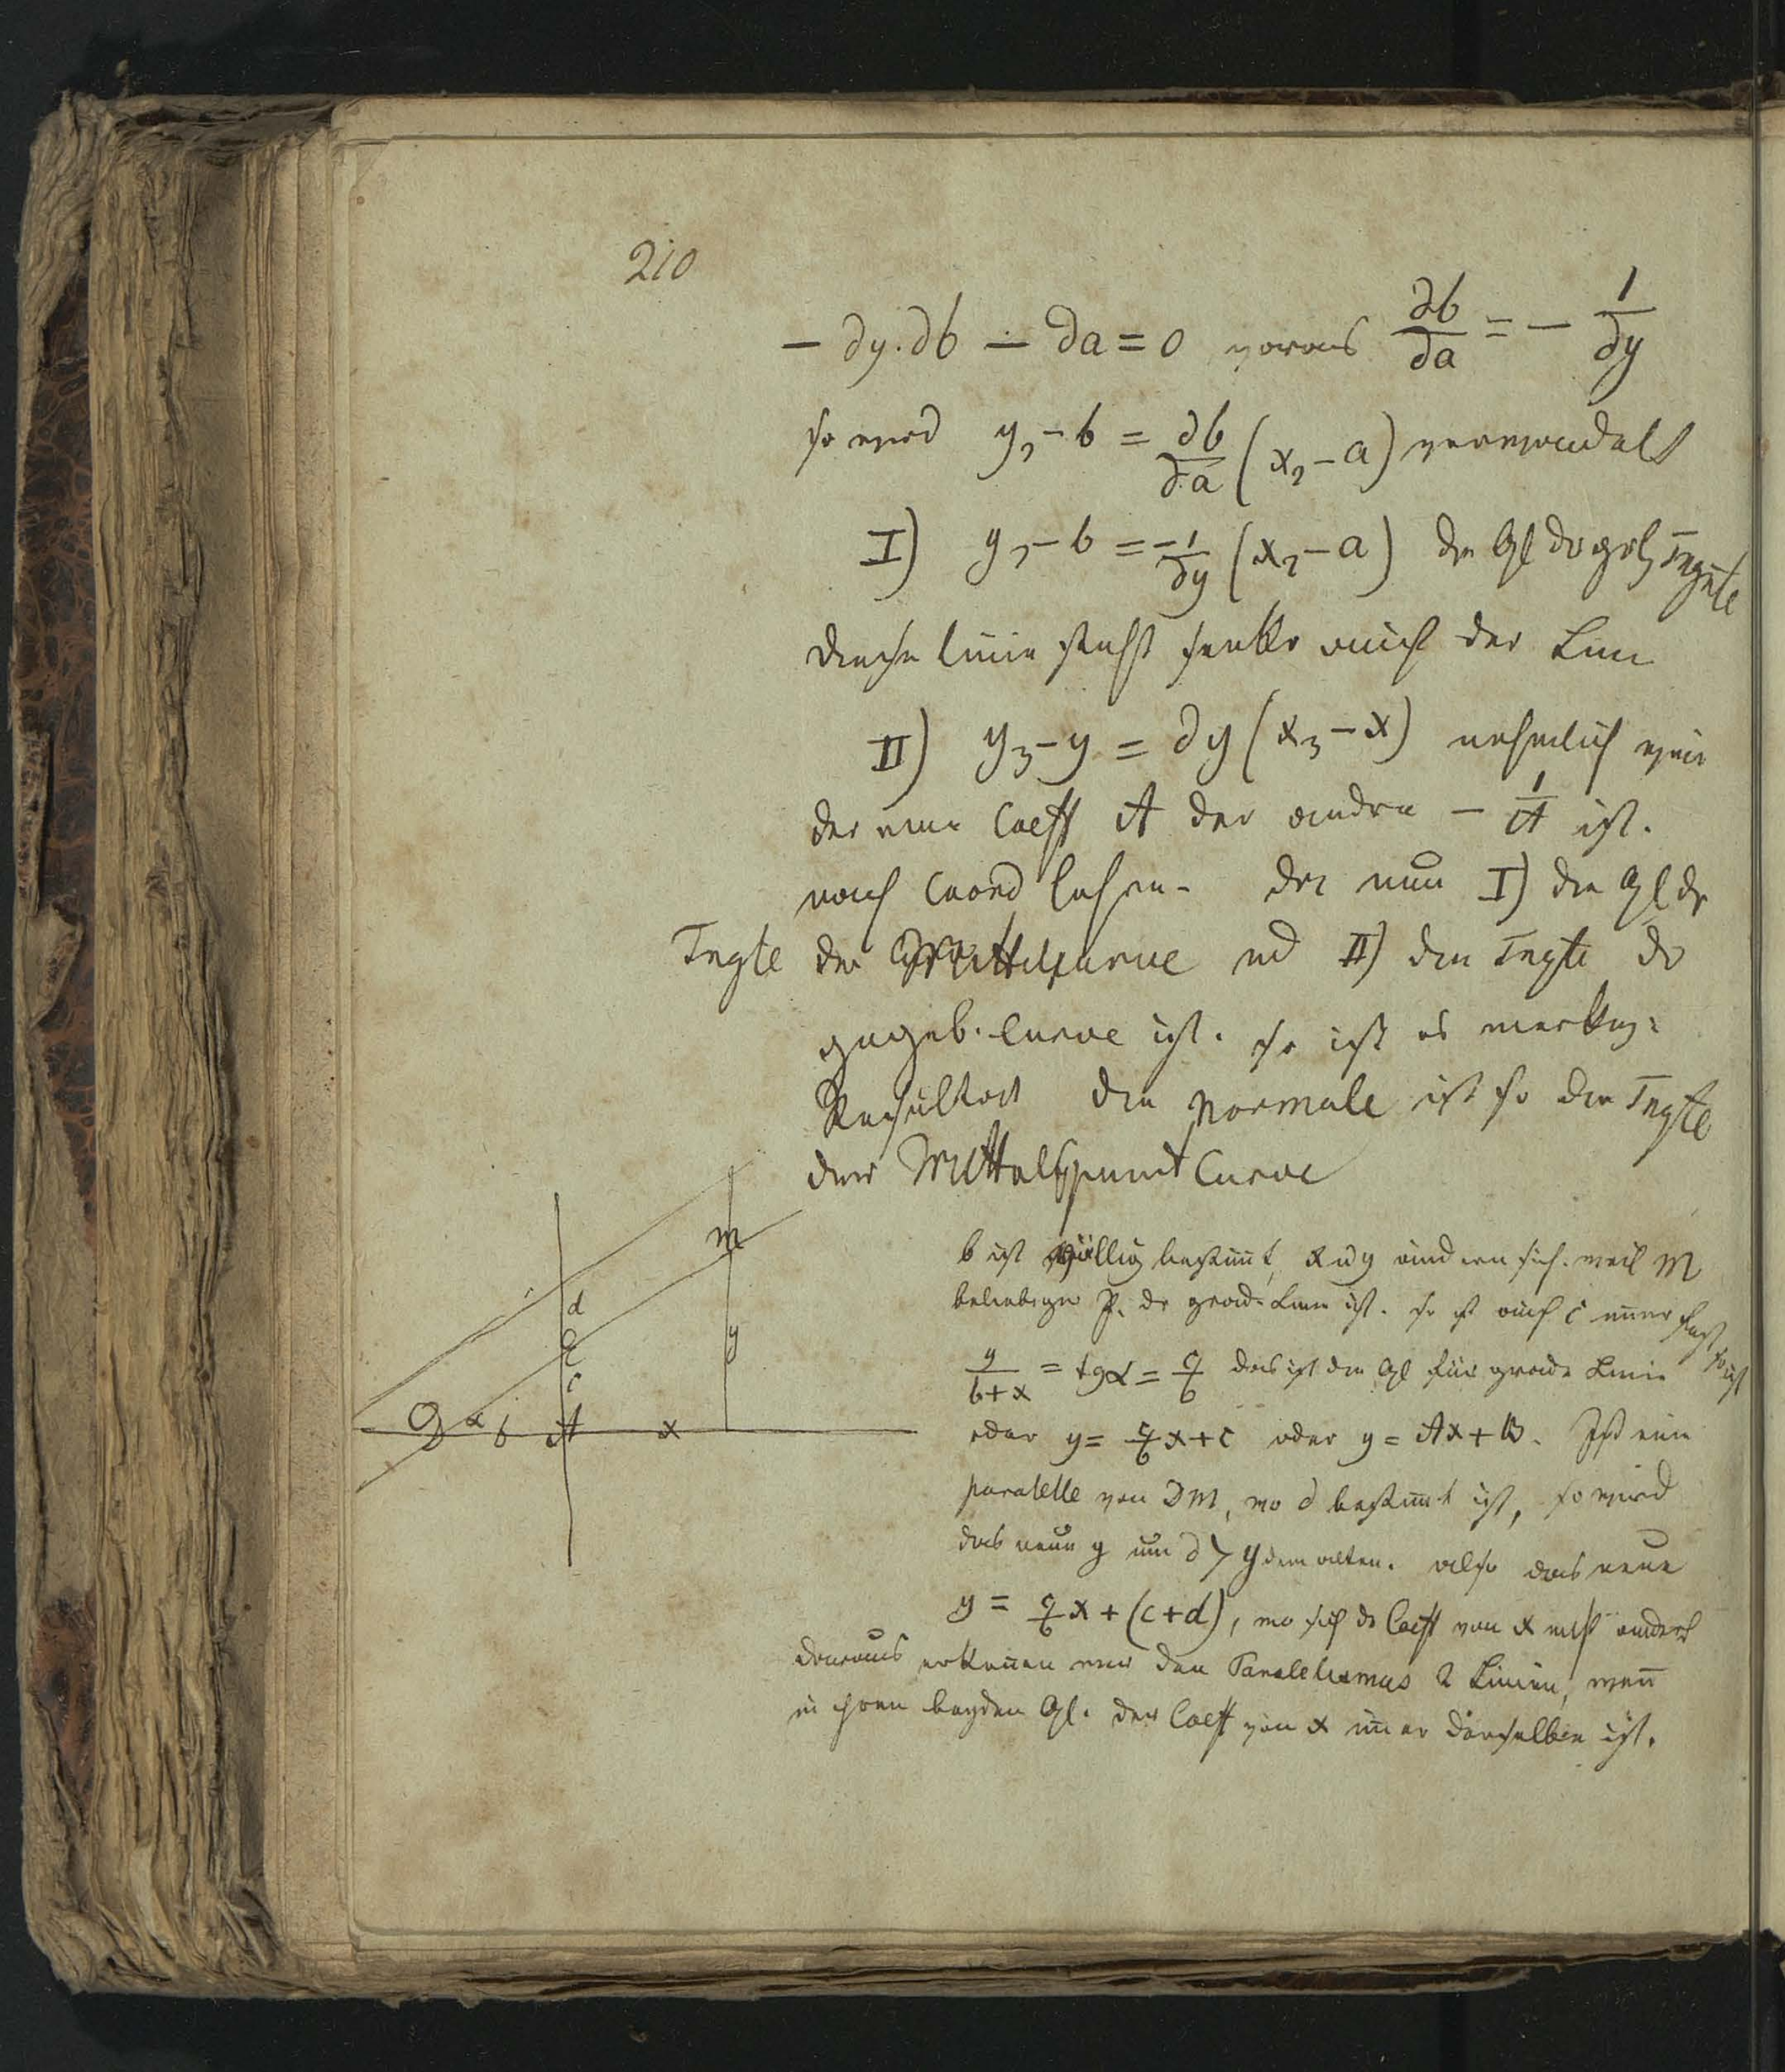 210
− ∂y.∂b − ∂a = 0 woraus ∂b/∂a = − 1/∂y
so wird y₂ − b = ∂b/∂a (x₂ − a) verwandelt
I) y₂ − b = −1/∂y (x₂ − a) die Gl der Tngte
diese Linie steht senkr auf der Linie
II) y₃ − y = ∂y (x₃ − x) nehmlich wenn
der eine Coeff A der andre − 1/A ist.
nach Coord lehre. Da nun I) die Gl der
Tngte der Mittelp curve und II) die Tngte der
gegeb. Curve ist. so ist es merkw:
Resultat die Normale ist so die Tngte
der Mittelspunct Curve
b ist völlig bestimt, x u y ändern sich. weil M
beliebiger P. der grade Linie ist. so ist auch c immer fest so ist
y/b+x = tgα = c/b das ist die Gl für grade Linie
oder y = c/b x + c oder y = Ax + B. Ist eine
paralelle von DM, wo d bestimt ist, so wird
das neue y um d > y dem alten. also das neue
y = c/b x + (c+d), wo sich der Coeff von x nicht ändert
daraus erkennen wir den Paralelismus 2 Linien, wenn
in ihren beyden Gl. der Coeff von x immer derselbe ist.
m
d
c
y
D α b A x